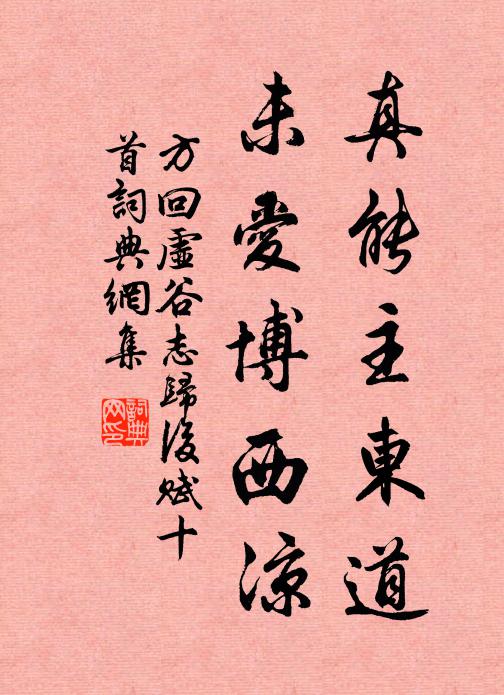 真能主東道
未愛博西涼
方回虛谷志歸後賦十
首詞典網集
詞典
网印